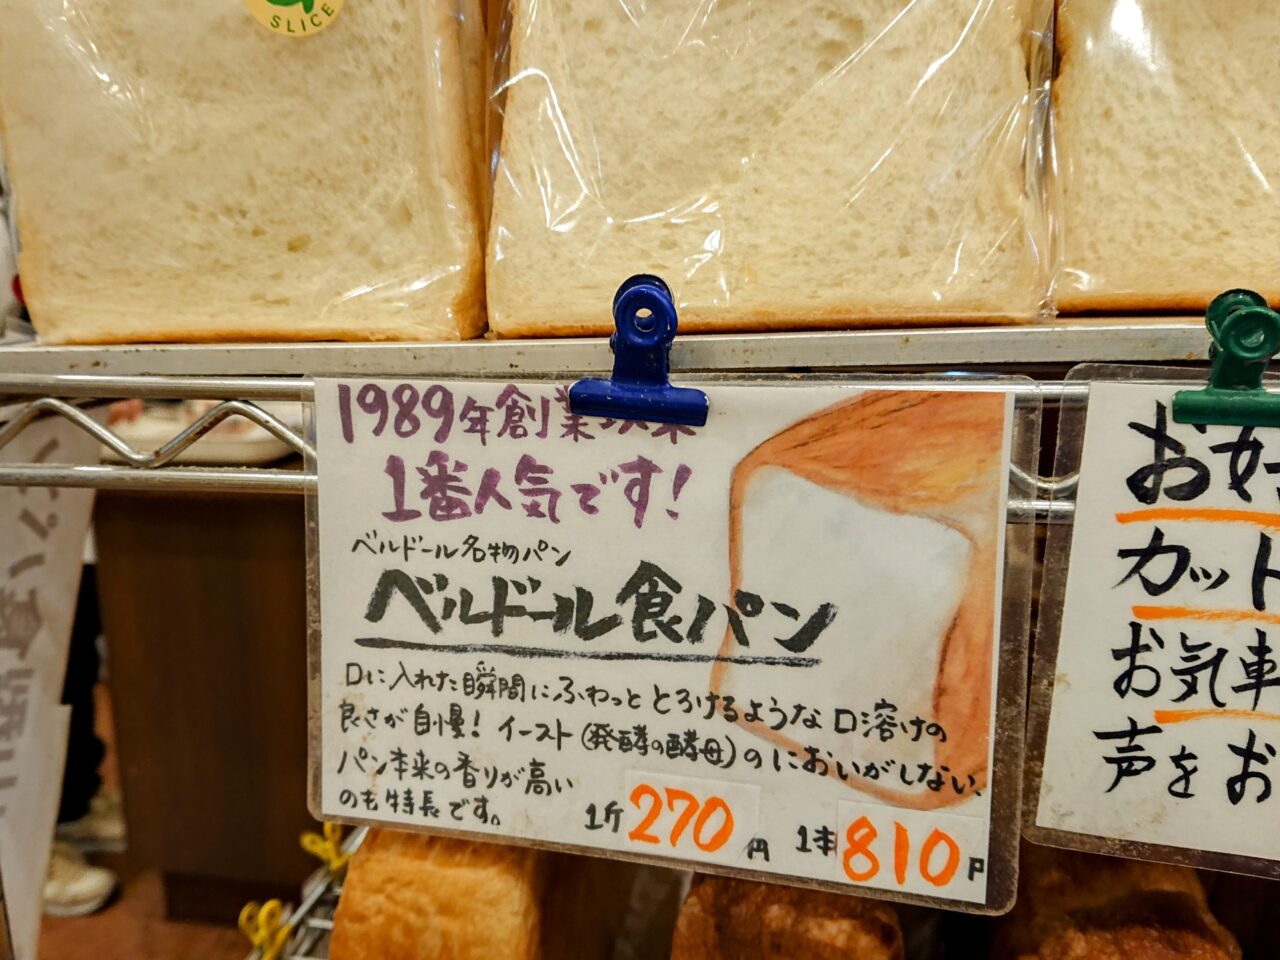 SLICE
1989年創業以来
1番人気です!
ベルドール名物パン
ベルドール食パン
口に入れた瞬間にふわっととろけるような口溶けの
良さが自慢! イースト(発酵の酵母)のにおいがしない、
パン本来の香りが高い
のも特長です。
1斤270円 1本810円
お好
カット
お気軽
声をお